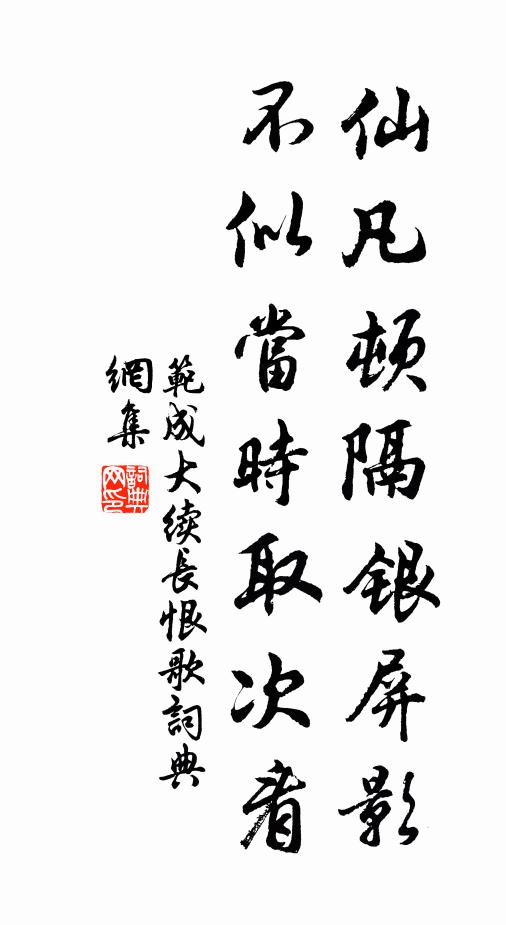 仙凡頓隔銀屏影
不似當時取次看
範成大续長恨歌詞典
網集
詞典
网印